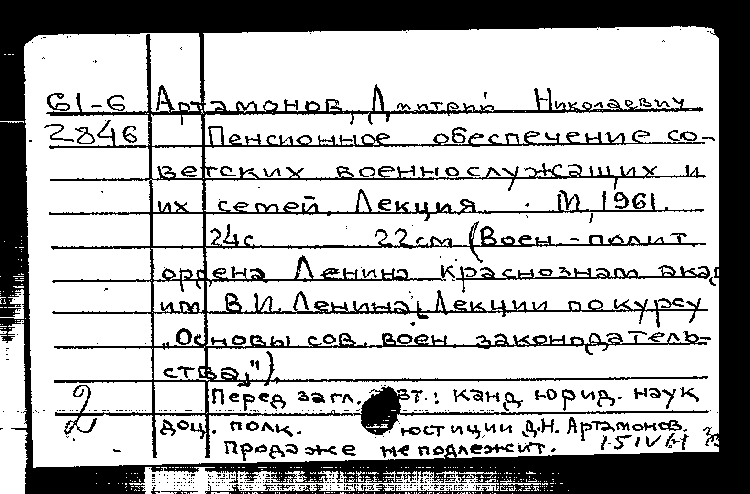 61-6 Артамонов, Дмитрий Николаевич
2846 Пенсионное обеспечение со-
ветских военнослужащих и
их семей. Лекция. М, 1961.
24с 22см (Воен.-полит.
ордена Ленина краснознам. акад
им В.И. Ленина. Лекции по курсу
"Основы сов. воен. законодатель-
ства").
Перед загл. авт.: канд юрид. наук
2 доц. полк. юстиции Д.Н. Артамонов.
Продаже не подлежит.